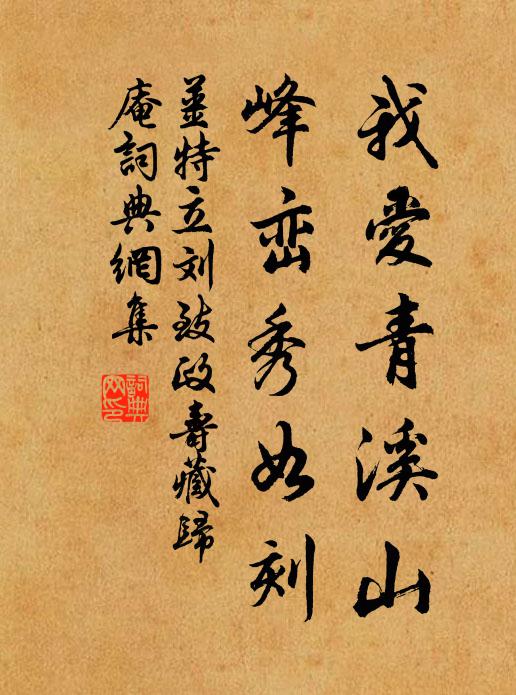 我愛青溪山
峰峦秀如刻
姜特立刘致政寿藏歸
庵詞典網集
詞典網印